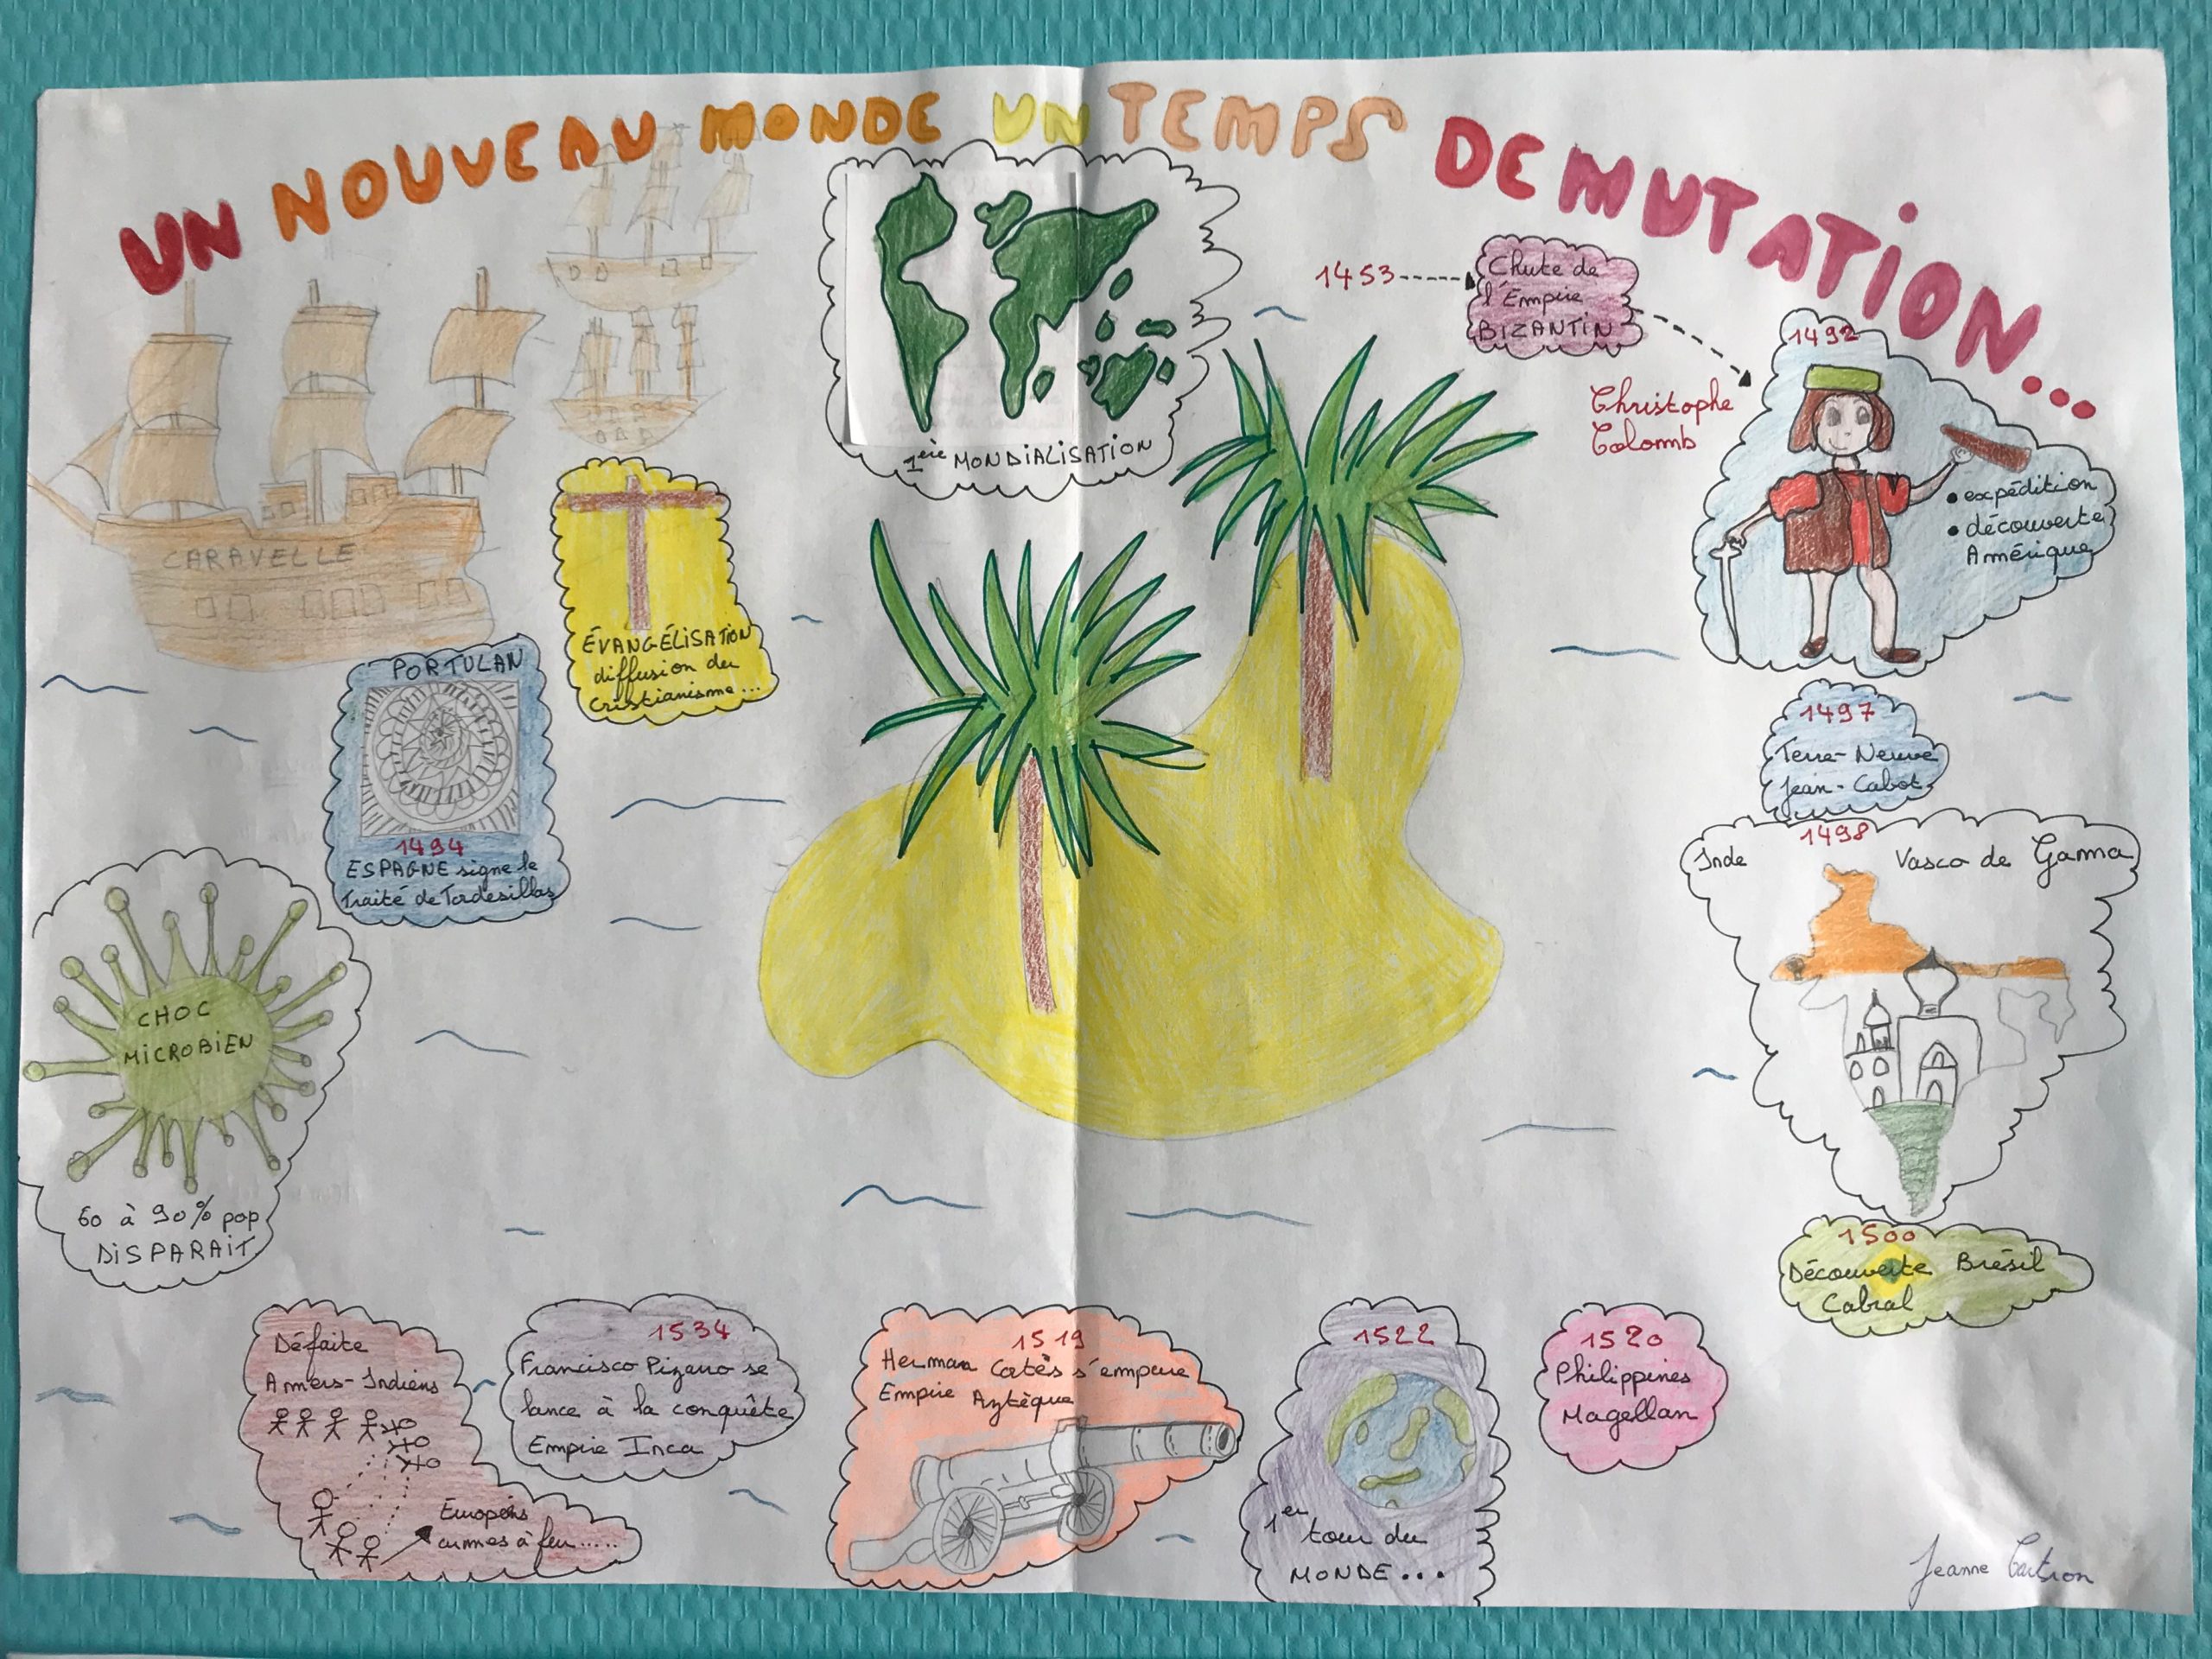 UN NOUVEAU MONDE UN TEMPS DE MUTATION...
1453
Chute de
l'Empire
BIZANTIN
1492
Christophe
Colomb
• expédition
• découverte
Amérique
1ère MONDIALISATION
CARAVELLE
ÉVANGÉLISATION
diffusion du
Cristianisme...
PORTULAN
1494
ESPAGNE signe le
Traité de Tordesillas
1497
Terre-Neuve
Jean-Cabot
1498
Inde Vasco de Gama
CHOC
MICROBIEN
60 à 90% pop
DISPARAIT
1500
Découverte Brésil
Cabral
Défaite
Amers-Indiens
Européns
armes à feu.....
1534
Francisco Pizarro se
lance à la conquête
Empire Inca
1519
Herman Cortès s'empare
Empire Aztèque
1522
1er tour du
MONDE...
1520
Philippines
Magellan
Jeanne